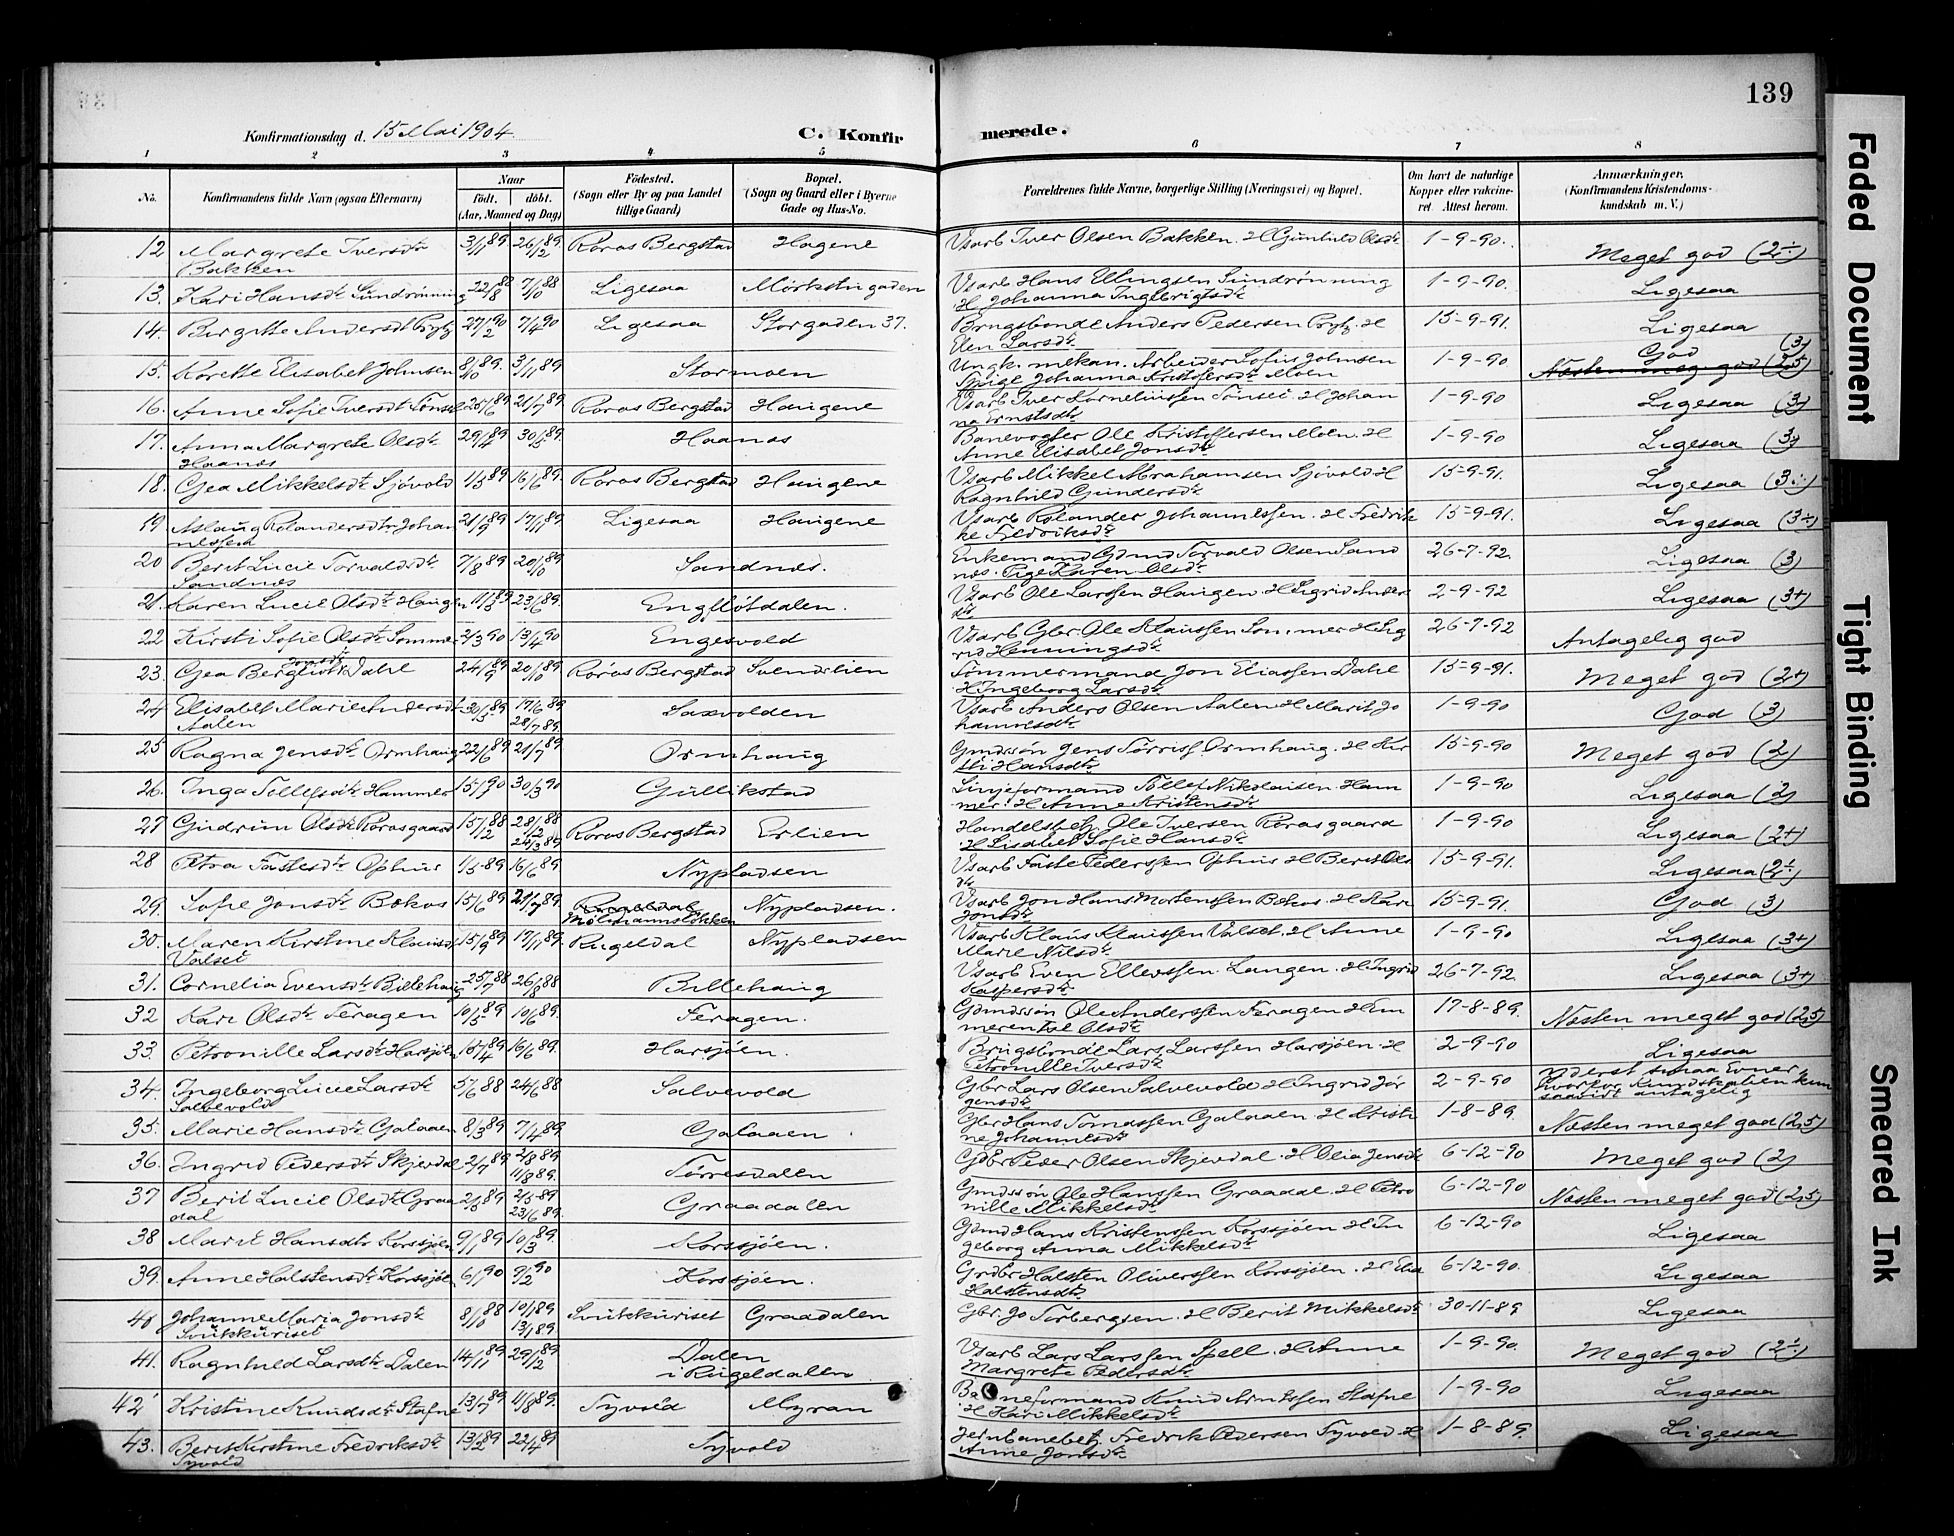 139
Konfirmationsdag d. 15 Mai 1904.
C. Konfirmerede.
1 2 3 4 5 6 7 8
No. Konfirmandens fulde Navn (ogsaa Efternavn) Naar födt. döbt. (Aar, Maaned og Dag) Födested. (Sogn eller By og paa Landet tillige Gaard) Bopæl. (Sogn og Gaard eller i Byerne Gade og Hus-No. Forældrenes fulde Navne, borgerlige Stilling (Næringsvei) og Bopæl. Om havt de naturlige Kopper eller vaccineret. Attest herom. Anmærkninger. (Konfirmandens Kristendomskundskab m. V.)
12 Margrete Iversdtr Bakken 3/11 89 26/12 89. Röros Bergstad Haugene Vsarb Iver Olsen Bakken. H Gunhild Olsdtr 1-9-90. Meget god (2÷)
13. Kari Hansdtr Sundrönning 22/8 88 7/10 88 Ligesaa Mörkstugaden Vsarb Hans Ellingsen Sundrönning H Johanna Ingebrigtsdtr 1-9-90. Ligesaa
14. Bergitte Andersdt Prytz 27/2 90 7/4 90 Ligesaa Storgaden 37. Brugsbonde Anders Pedersen Prytz. H Elen Larsdtr 15-9-91. Ligesaa
15. Korette Elisabet Johnsen 8/10 89. 3/11 89. Stormoen Ungk. mekan. Arbeider Sofus Johnsen Pige Johanna Kristofersdtr Moen 1-9-90 God (3) Næsten meg god (2,5)
16. Anne Sofie Iversdt Tönset 25/6 89 21/7 89. Röros Bergstad Haugene Vsarb Iver Korneliussen Tönset H Johanna Ernstsdtr 1-9-90 Ligesaa (3)
17. Anna Margrete Olsdtr Haanæs 29/4 89 30/5 89. Haanæs Banevogter Ole Kristoffersen Moen. H Anne Elisabet Jonsdtr 1-9-90 Ligesaa (3)
18. Gea Mikkelsdtr Sjövold 1/5 89 16/6 89. Röros Bergstad Haugene Vsarb Mikkel Abrahamsen Sjövold H Ragnhild Gundersdtr 15-9-91. Ligesaa (3÷)
19 Aslaug Rolandersdtr Johannessen 21/9 89 17/11 89. Ligesaa Haugene Vsarb Rolander Johannessen. H Fredrikke Fredriksdtr 15-9-91. Ligesaa (3÷)
20 Berit Lucie Torvaldsdtr Sandnæs 7/8 89 20/10 89. Sandnæs. Enkemand Gdmd Torvald Olsen Sandnæs. Pige Karen Olsdtr 26-7-92. Ligesaa (3)
21. Karen Lucie Olsdt Haugen 11/5 89 23/6 89. Engflötdalen. Vsarb Ole Larssen Haugen. H Sigrid Andersdtr 2-9-92 Ligesaa (3+)
22 Kirsti Sofie Olsdt Sommer 2/3 90 13/4 90 Engesvold Vsarb Gbr. Ole Klaussen Sommer H Sigrid Henningsdtr 26-7-92 Antagelig god
23. Gea Bergliot Jonsdtr Dahl 24/9 89 20/10 89. Röros Bergstad Svendslien Tömmermand Jon Eliassen Dahl H Ingeborg Larsdtr 15-9-91. Meget god (2+)
24 Elisabet Marie Andersdt Aalen 30/5 89 17/6 89 28/7 89. Saxvolden Vsarb Anders Olsen Aalen H Marit Johannesdtr 1-9-90 God (3)
25 Ragna Jensdtr Ormhaug 22/6 89 21/7 89. Ormhaug Gmdssön Jens Tørriss. Ormhaug. H Kirsti Hansdtr 15-9-90 Meget god (2)
26. Inga Tollefsdtr Hammer 15/1 90 30/3 90 Gullikstad Linjeformand Tollef Nikolaisen Hammer. H Anne Kristensdtr 1-9-90 Ligesaa (2)
27 Gudrun Olsdt Rørosgaard 15/12 88 28/12 88 24/3 89 Röros Bergstad Erlien Handelsbetj. Ole Iversen Rörosgaard H Lisabet Sofie Hansdtr 1-9-90 Ligesaa (2+)
28 Petra Fastesdtr Ophus 1/5-89 16/6 89. Nypladsen Vsarb Faste Pederssen Ophus H Berit Olsdtr 15-9-91. Ligesaa (2÷)
29. Sofie Jonsdtr Bækos 15/6 89. 21/7 89. Rugeldal Molmannsløkken Nypladsen. Vsarb Jon Hans Mortenssen Bækos. H Kari Jonsdtr 15-9-91. God (3)
30. Maren Kirstine Klausdt Valset 15/9 89 17/11 89. Rugeldal Nypladsen Vsarb Klaus Klaussen Valset. H Anne Marie Nilsdtr 1-9-90 Ligesaa (3+)
31. Cornelia Evensdtr Billehaug 25/7 88 26/8 88 Billehaug Vsarb Even Ellevssen Langen. H Ingrid Kaspersdtr 26-7-92. Ligesaa (3+)
32 Kari Olsdtr Feragen 10/5 89 10/6 89. Feragen. Gdmdssön Ole Anderssen Feragen H Emmerentse Olsdtr 17-8-89. Næsten meget god (2,5)
33. Petronille Larsdtr Harsjöen 15/4 89. 16/6 89. Harsjöen. Brugsbonde Lars Larssen Harsjöen. H Petronille Iversdtr 2-9-90 Ligesaa
34. Ingeborg Lucie Larsdtr Salvevold 5/6 88 24/6 88 Salvevold Gbr Lars Olsen Salvevold H Ingrid Jörgensdtr 2-9-90 yderst smaa Evner, hvorfor Kundskaben kun saavidt antagelig
35. Marie Hansdtr Galaaen 8/3 89 7/4 89. Galaaen Gbr Hans Tomassen Galaaen H Kristine Johannesdtr 1-8-89. Næsten meget god (2,5)
36. Ingrid Pedersdtr Skjevdal 2/7 89 2/8 89. 11/8 89. Törresdalen Gdbr Peder Olsen Skjevdal. H Olia Jensdtr 6-12-90 Meget god (2)
37 Berit Lucie Olsdtr Graadal 2/5 89 2/5-89 23/6 89. Graadalen Gmdssön Ole Hanssen Graadal. H Petronille Mikkelsdtr 6-12-90 Næsten meget god (2,5)
38 Marit Hansdtr Korssjöen 9/1 89 10/3 89. Korssjöen. Gdmd Hans Kristenssen Korssjöen H Ingeborg Anna Mikkelsdtr 6-12-90 Ligesaa
39. Anne Halstensdtr Korssjöen 6/1 90 9/2 90 Korssjöen. Grdbr Halsten Oliverssen Korssjöen. H Elia Halstensdtr 6-12-90. Ligesaa
40 Johanne Maria Jonsdtr Svukkuriset 8/10 88 10/1 89. 13/1 89. Svukkuriset Graadalen Gbr. Jo Torbergsen. H Berit Mikkelsdtr 30-11-89 Ligesaa
41. Ragnhild Larsdtr Dalen 14/11 89 29/12 89. Dalen i Rugeldalen Vsarb Lars Larssen Spell. H Anne Margrete Pedersdtr 1-9-90. Meget god (2÷)
42 Kristine Knudsdtr Stafne 13/7 89 11/8 89. Tyvold Myran Baneformand Knud Arntssen Stafne H Kari Mikkelsdtr 1-9-90 Ligesaa
43. Berit Kirstine Fredriksdtr Tyvold 13/2 89 22/4 89 Tyvold Jernbanebetj. Fredrik Pedersen Tyvold H Anne Jonsdtr 1-8-89. Ligesaa
Faded Document
Tight Binding
Smeared Ink